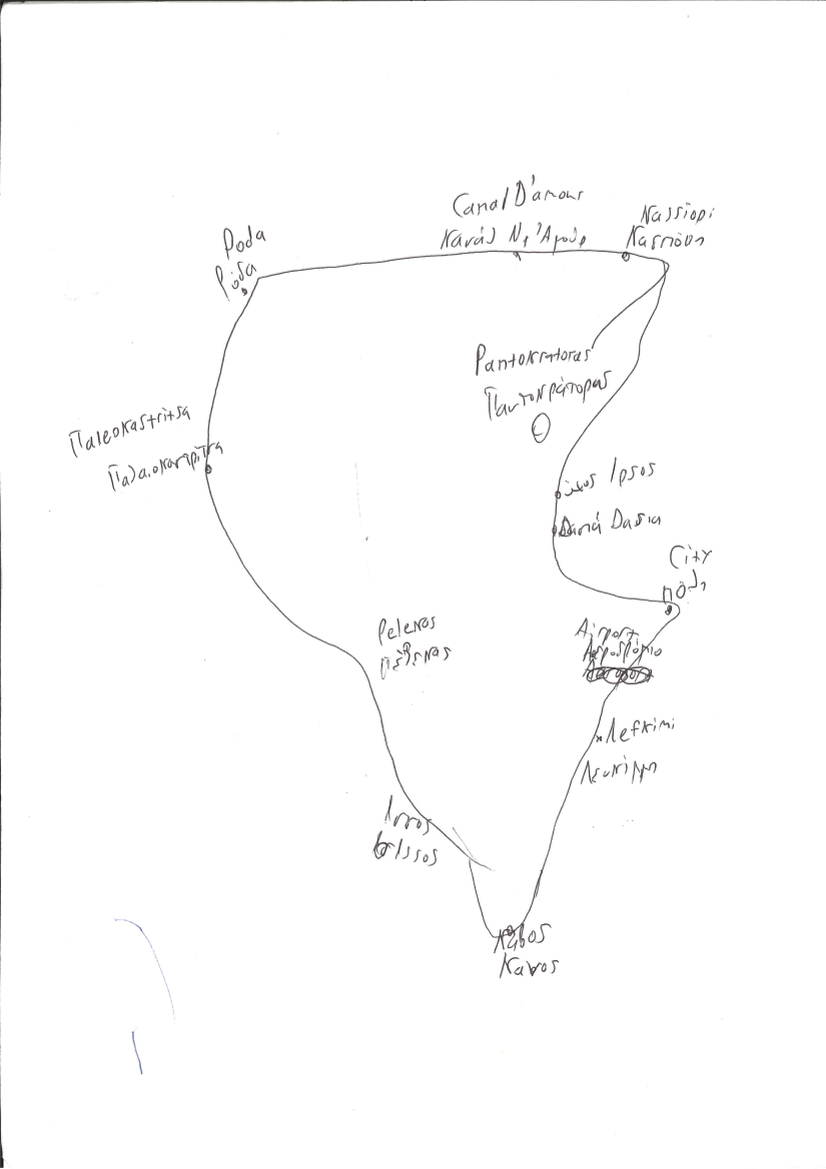 Canal D'amour
Κανάλ Ντ'Αμούρ
Kassiopi
Κασσιόπη
Roda
Ρόδα
Pantokratoras
Παντοκράτορας
Paleokastritsa
Παλαιοκαστρίτσα
Ύψος Ipsos
Δασιά Dasia
City
πόλη
Pelekas
πέλεκας
Airport
Αεροδρόμιο
Lefkimi
Λευκίμμη
Issos
Κάβος
Kavos